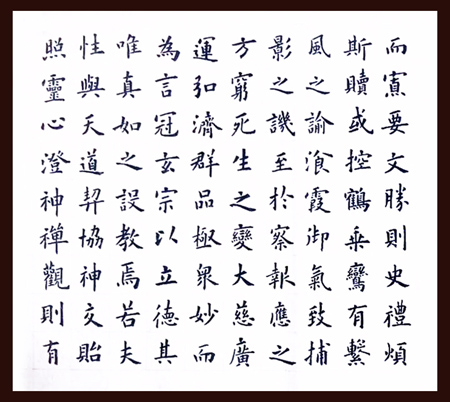 而寡要文勝則史禮煩
斯贖或控鶴乗鸞有繫
風之諭飡霞御氣致捕
影之譏至於察報應之
方窮死生之變大慈廣
運弘濟群品極衆妙而
為言冠玄宗以立德其
唯真如之設教焉若夫
性與天道契協神交貽
照靈心澄神禪觀則有